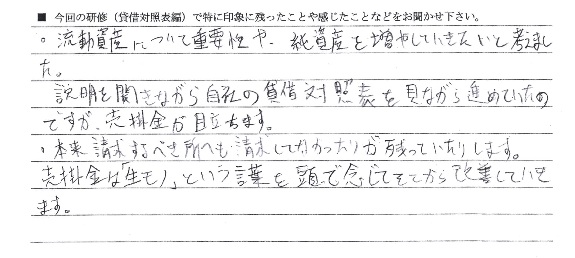 ■ 今回の研修（貸借対照表編）で特に印象に残ったことや感じたことなどをお聞かせ下さい。
・流動資産について重要性や、純資産を増やしていきたいと考えまし
た。
説明を聞きながら自社の貸借対照表を見ながら進めていたの
ですが、売掛金が目立ちます。
・本来請求するべき所へも請求してなかったりが残っていたりします。
売掛金は「生モノ」という言葉を頭で念じてそこから改善していき
ます。